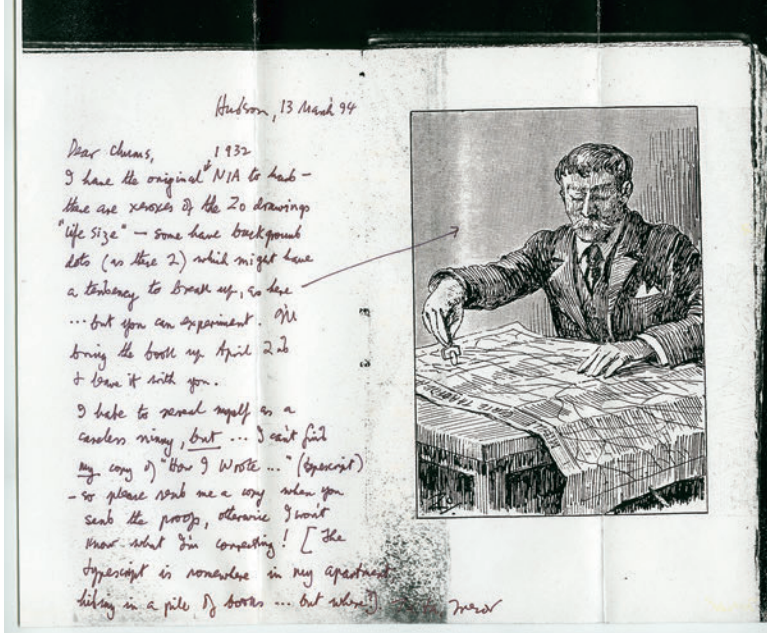 Hudson, 13 March 94
Dear Chums,
1932
I have the original NIA to hand –
there are xeroxes of the Zo drawings
"life size" – some have background
dots (as these 2) which might have
a tendency to break up, as here
... but you can experiment. I'll
bring the book up April 2nd
& leave it with you.
I hate to reveal myself as a
careless ninny, but ... I can't find
my copy of "How I Wrote ..." (typescript)
– so please send me a copy when you
send the proofs, otherwise I won't
know what I'm correcting! [The
typescript is somewhere in my apartment
hiding in a pile of books ... but where?]
Trevor